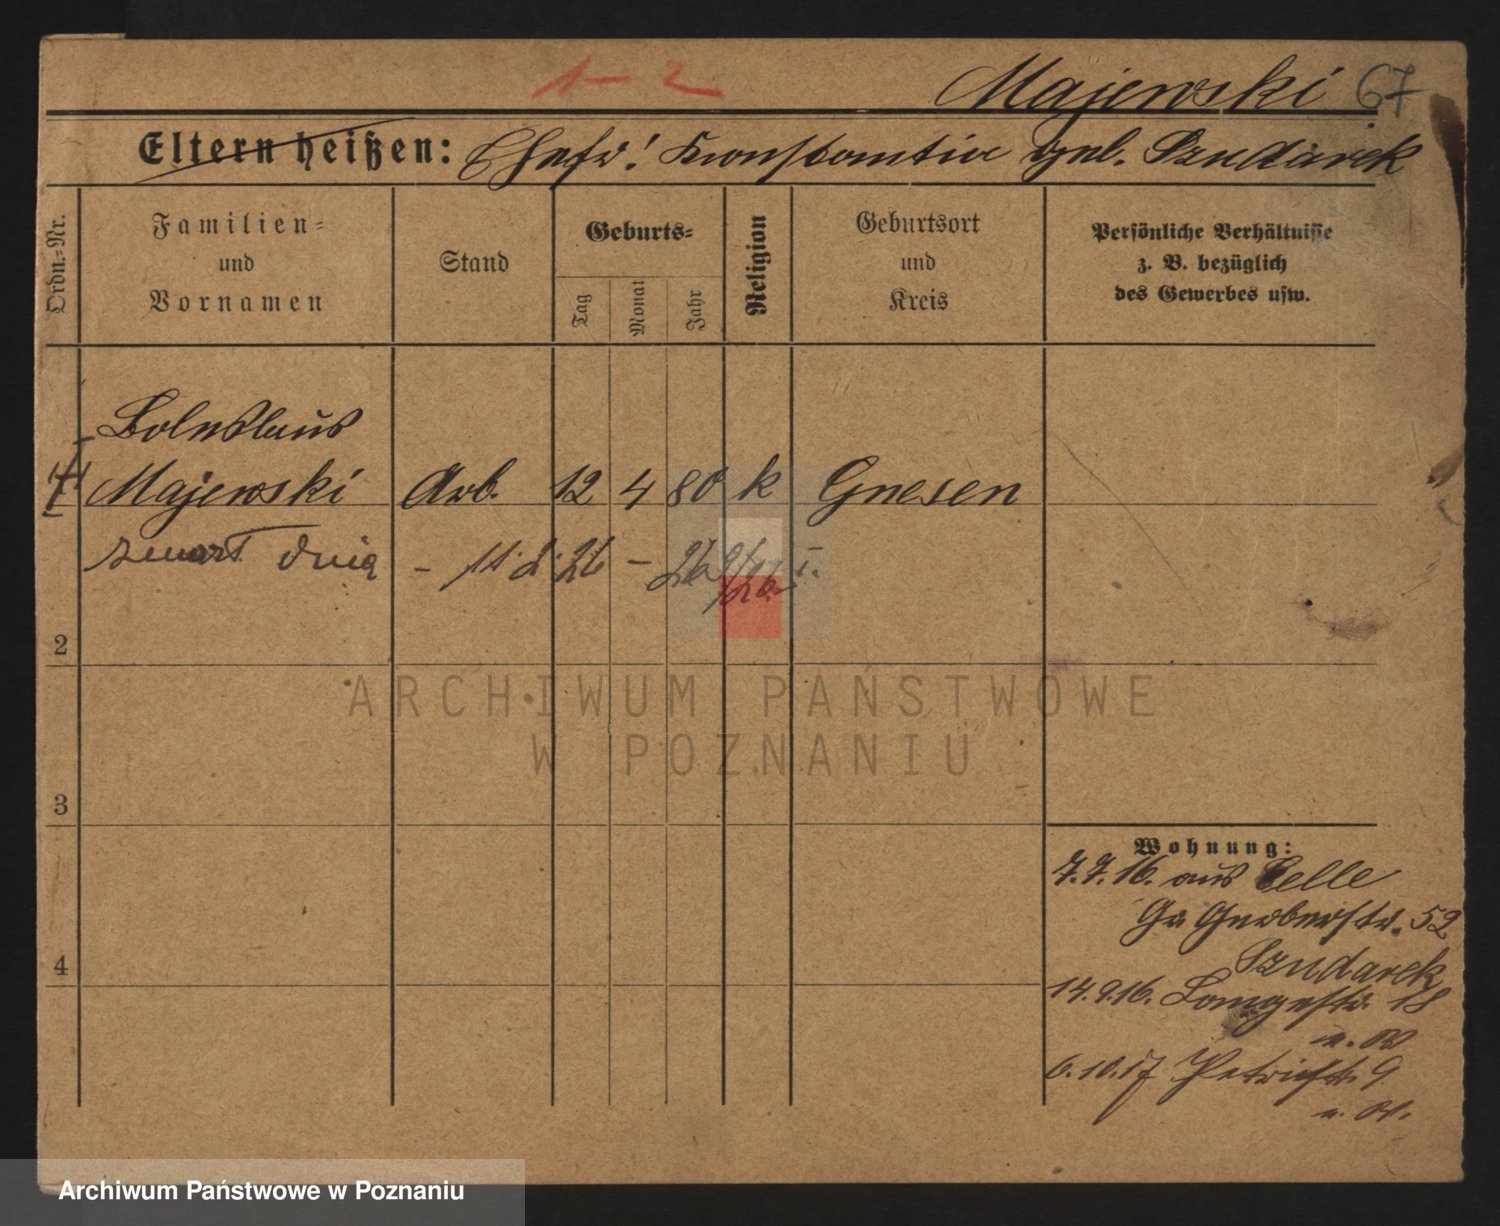 1-2
Majewski 67
Eltern heißen: Ehefr: Konstantia geb. Szudarek
Ordn.-Nr.
Familien-
und
Vornamen
Stand
Geburts-
Tag
Monat
Jahr
Religion
Geburtsort
und
Kreis
Persönliche Verhältnisse
z. B. bezüglich
des Gewerbes usw.
Boleslaus
Majewski Arb. 12 4 80 k Gnesen
zmarł dnia - 11.2.26 -
2
3
4
ARCHIWUM PAŃSTWOWE
W POZNANIU
Wohnung:
7.7.16. aus Celle
Gr Gerberstr. 52
Szudarek
14.9.16. Langestr. 18
u. W
6.10.17 Petristr. 9
u. W.
Archiwum Państwowe w Poznaniu